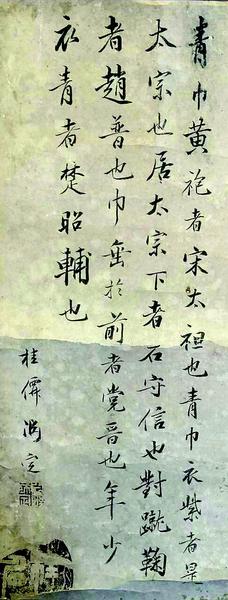 青巾黃袍者宋太祖也青巾衣紫者是
太宗也居太宗下者石守信也對蹴鞠
者趙普也巾垂於前者党晉也年少
衣青者楚昭輔也
桂